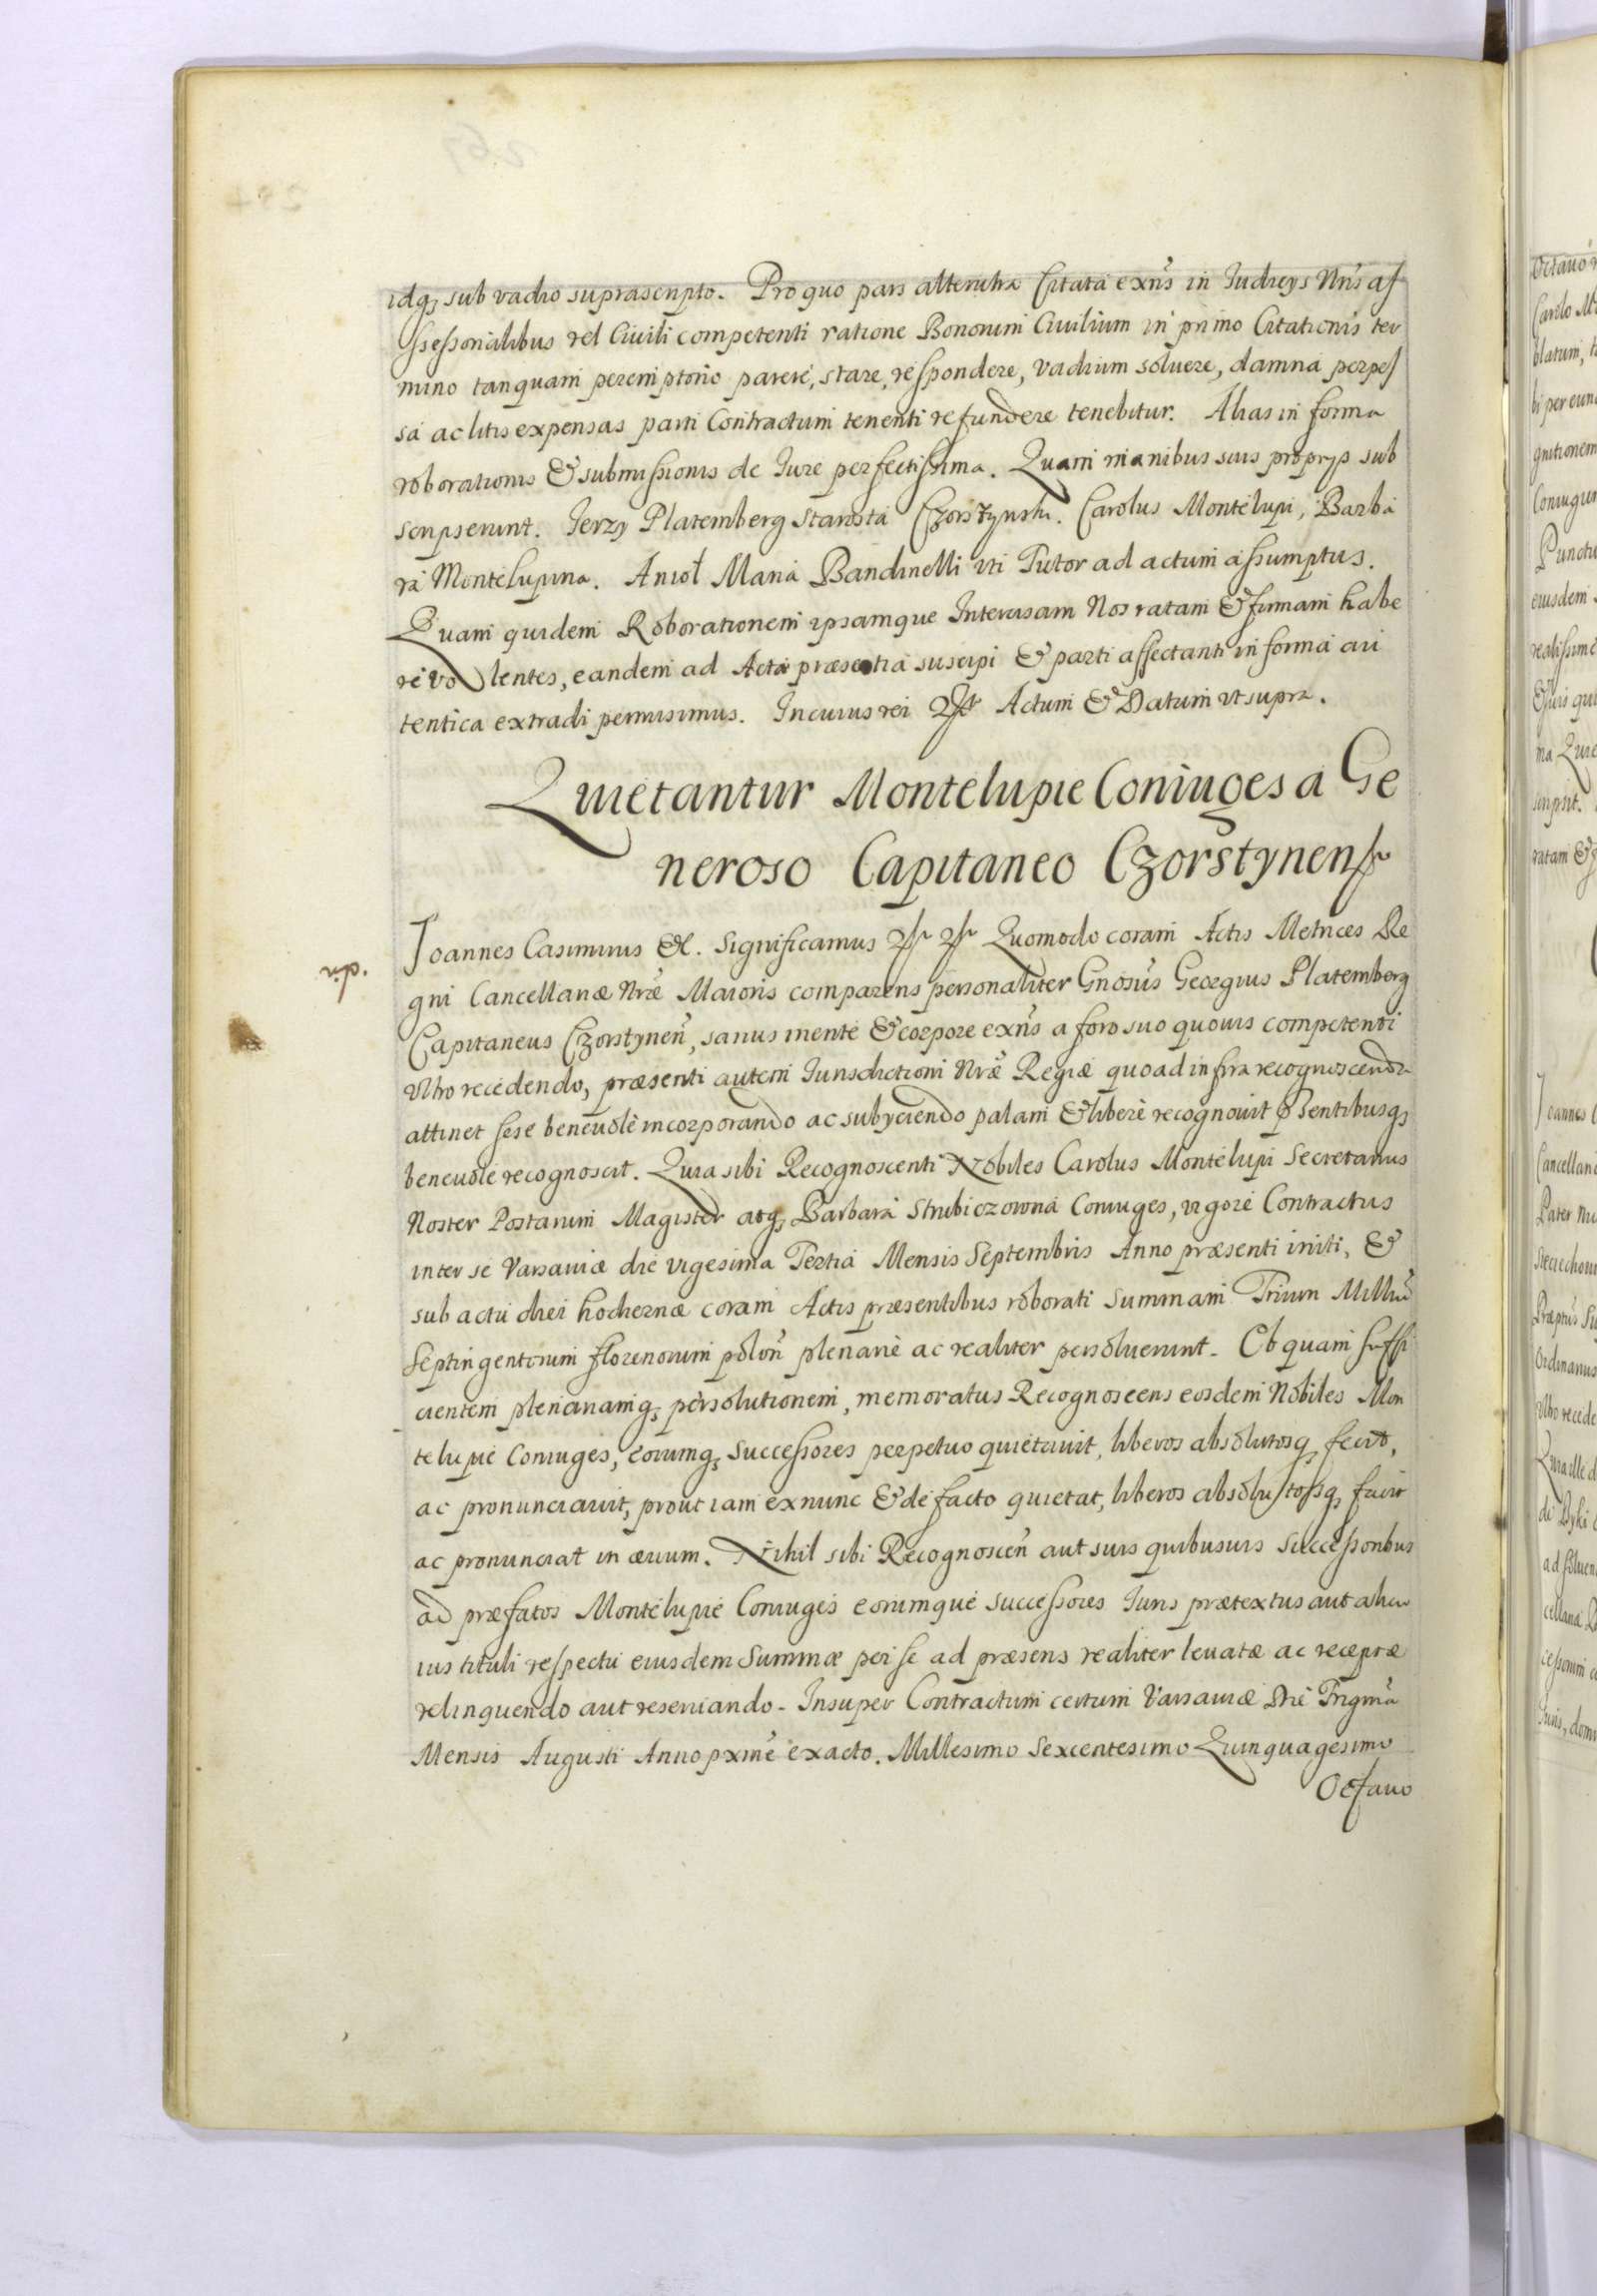 idq, sub vadio suprascripto. Pro quo pars alterutra Citata exñs in Iudicijs Nr̃is as
sessorialibus vel Ciuili competenti ratione Bonorum Ciuilium in primo Citationis ter
mino tanquam peremptorio parere, stare, respondere, vadium soluere, damna perpes
sa ac litis expensas parti Contractum tenenti refundere tenebitur. Alias in forma
roborationis & submissionis de Iure perfectissima. Quam manibus suis proprijs sub
scripserunt. Jerzy Platemberg Starosta Czorsztynski. Carolus Montelupi, Barba
ra Montelupina. Anioł Maria Bandinelli vti Tutor ad actum assumptus.
Quam quidem Roborationem ipsamque Intercisam Nos ratam & firmam habe
re volentes, eandem ad Acta præsentia suscipi & parti affectanti in forma au
tentica extradi permisimus. In cuius rei Actum & Datum vt supra.
Quietantur Montelupie Coniuges a Ge
neroso Capitaneo Czorstynens
Ioannes Casimirus &. Significamus Quomodo coram Actis Metrices Re
rp.
gni Cancellariæ Nræ Maioris comparens personaliter Gnosus Georgius Platemberg
Capitaneus Czorstynen̄, sanus mente & corpore exñs a foro suo quouis competenti
vltro recedendo, præsenti autem Iurisdictioni Nræ Regiæ quoad infra recognoscenda
attinet sese beneuole incorporando ac subyciendo palam & libere recognouit p̄sentibusq,
beneuole recognoscit. Quia sibi Recognoscenti Nobiles Carolus Montelupi Secretarius
Noster Postarum Magister atq, Barbara Strubiczowna Coniuges, vigore Contractus
inter se Varsauiæ die vigesima Tertia Mensis Septembris Anno præsenti initi, &
sub actu diei hodiernæ coram Actis præsentibus roborati Summam Trium Milliū
Septingentorum florenorum polon̄ plenarie ac realiter persoluerunt. Ob quam suffi
cientem plenariamq, persolutionem, memoratus Recognoscens eosdem Nobiles Mon
telupie Coniuges, eorumq, Successores perpetuo quietauit, liberos absolutosq, fecit,
ac pronunciauit, prout iam exnunc & de facto quietat, liberos absolutosq, facit
ac pronunciat in æuum. Nihil sibi Recognoscen̄ aut suis quibusuis Successoribus
ad præfatos Montelupie Coniuges eorumque successores Iuris prætextus aut alicu
ius tituli respectu eiusdem Summæ per se ad præsens realiter leuatæ ac receptæ
relinquendo aut reseruando. Insuper Contractum certum Varsauiæ Die Trigmā
Mensis Augusti Anno pxme exacto. Millesimo Sexcentesimo Quinquagesimo
Octauo